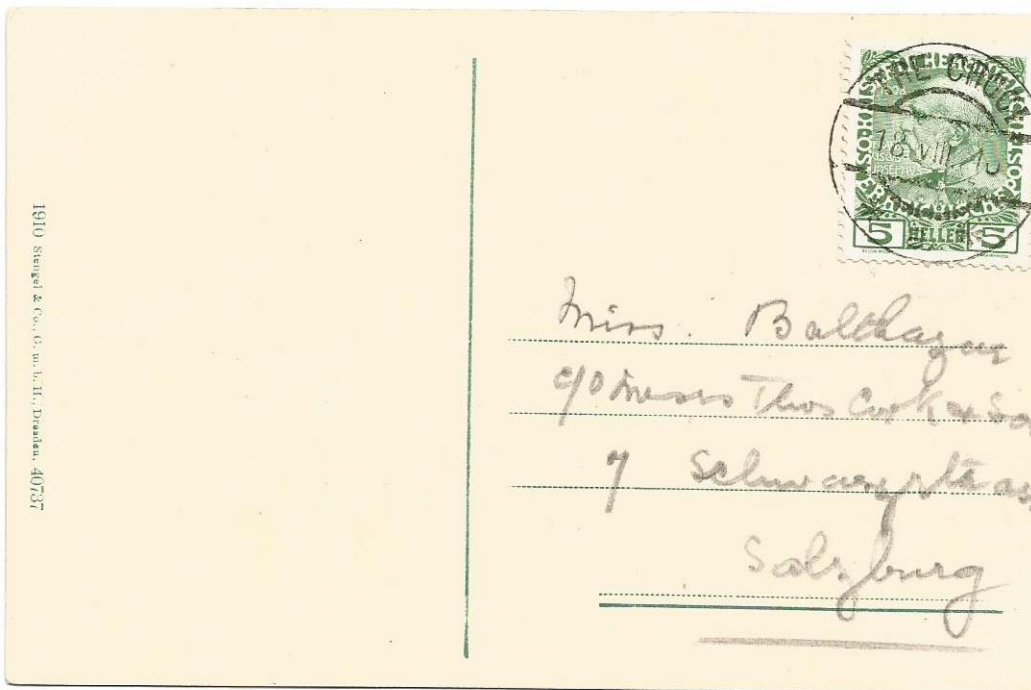 1910 Stengel & Co., G. m. b. H., Dresden. 40737
18 VIII 10
5 HELLER 5
Miss. Balthazar
c/o Messrs Thos Cook & So
7 Schwarzstras
Salzburg